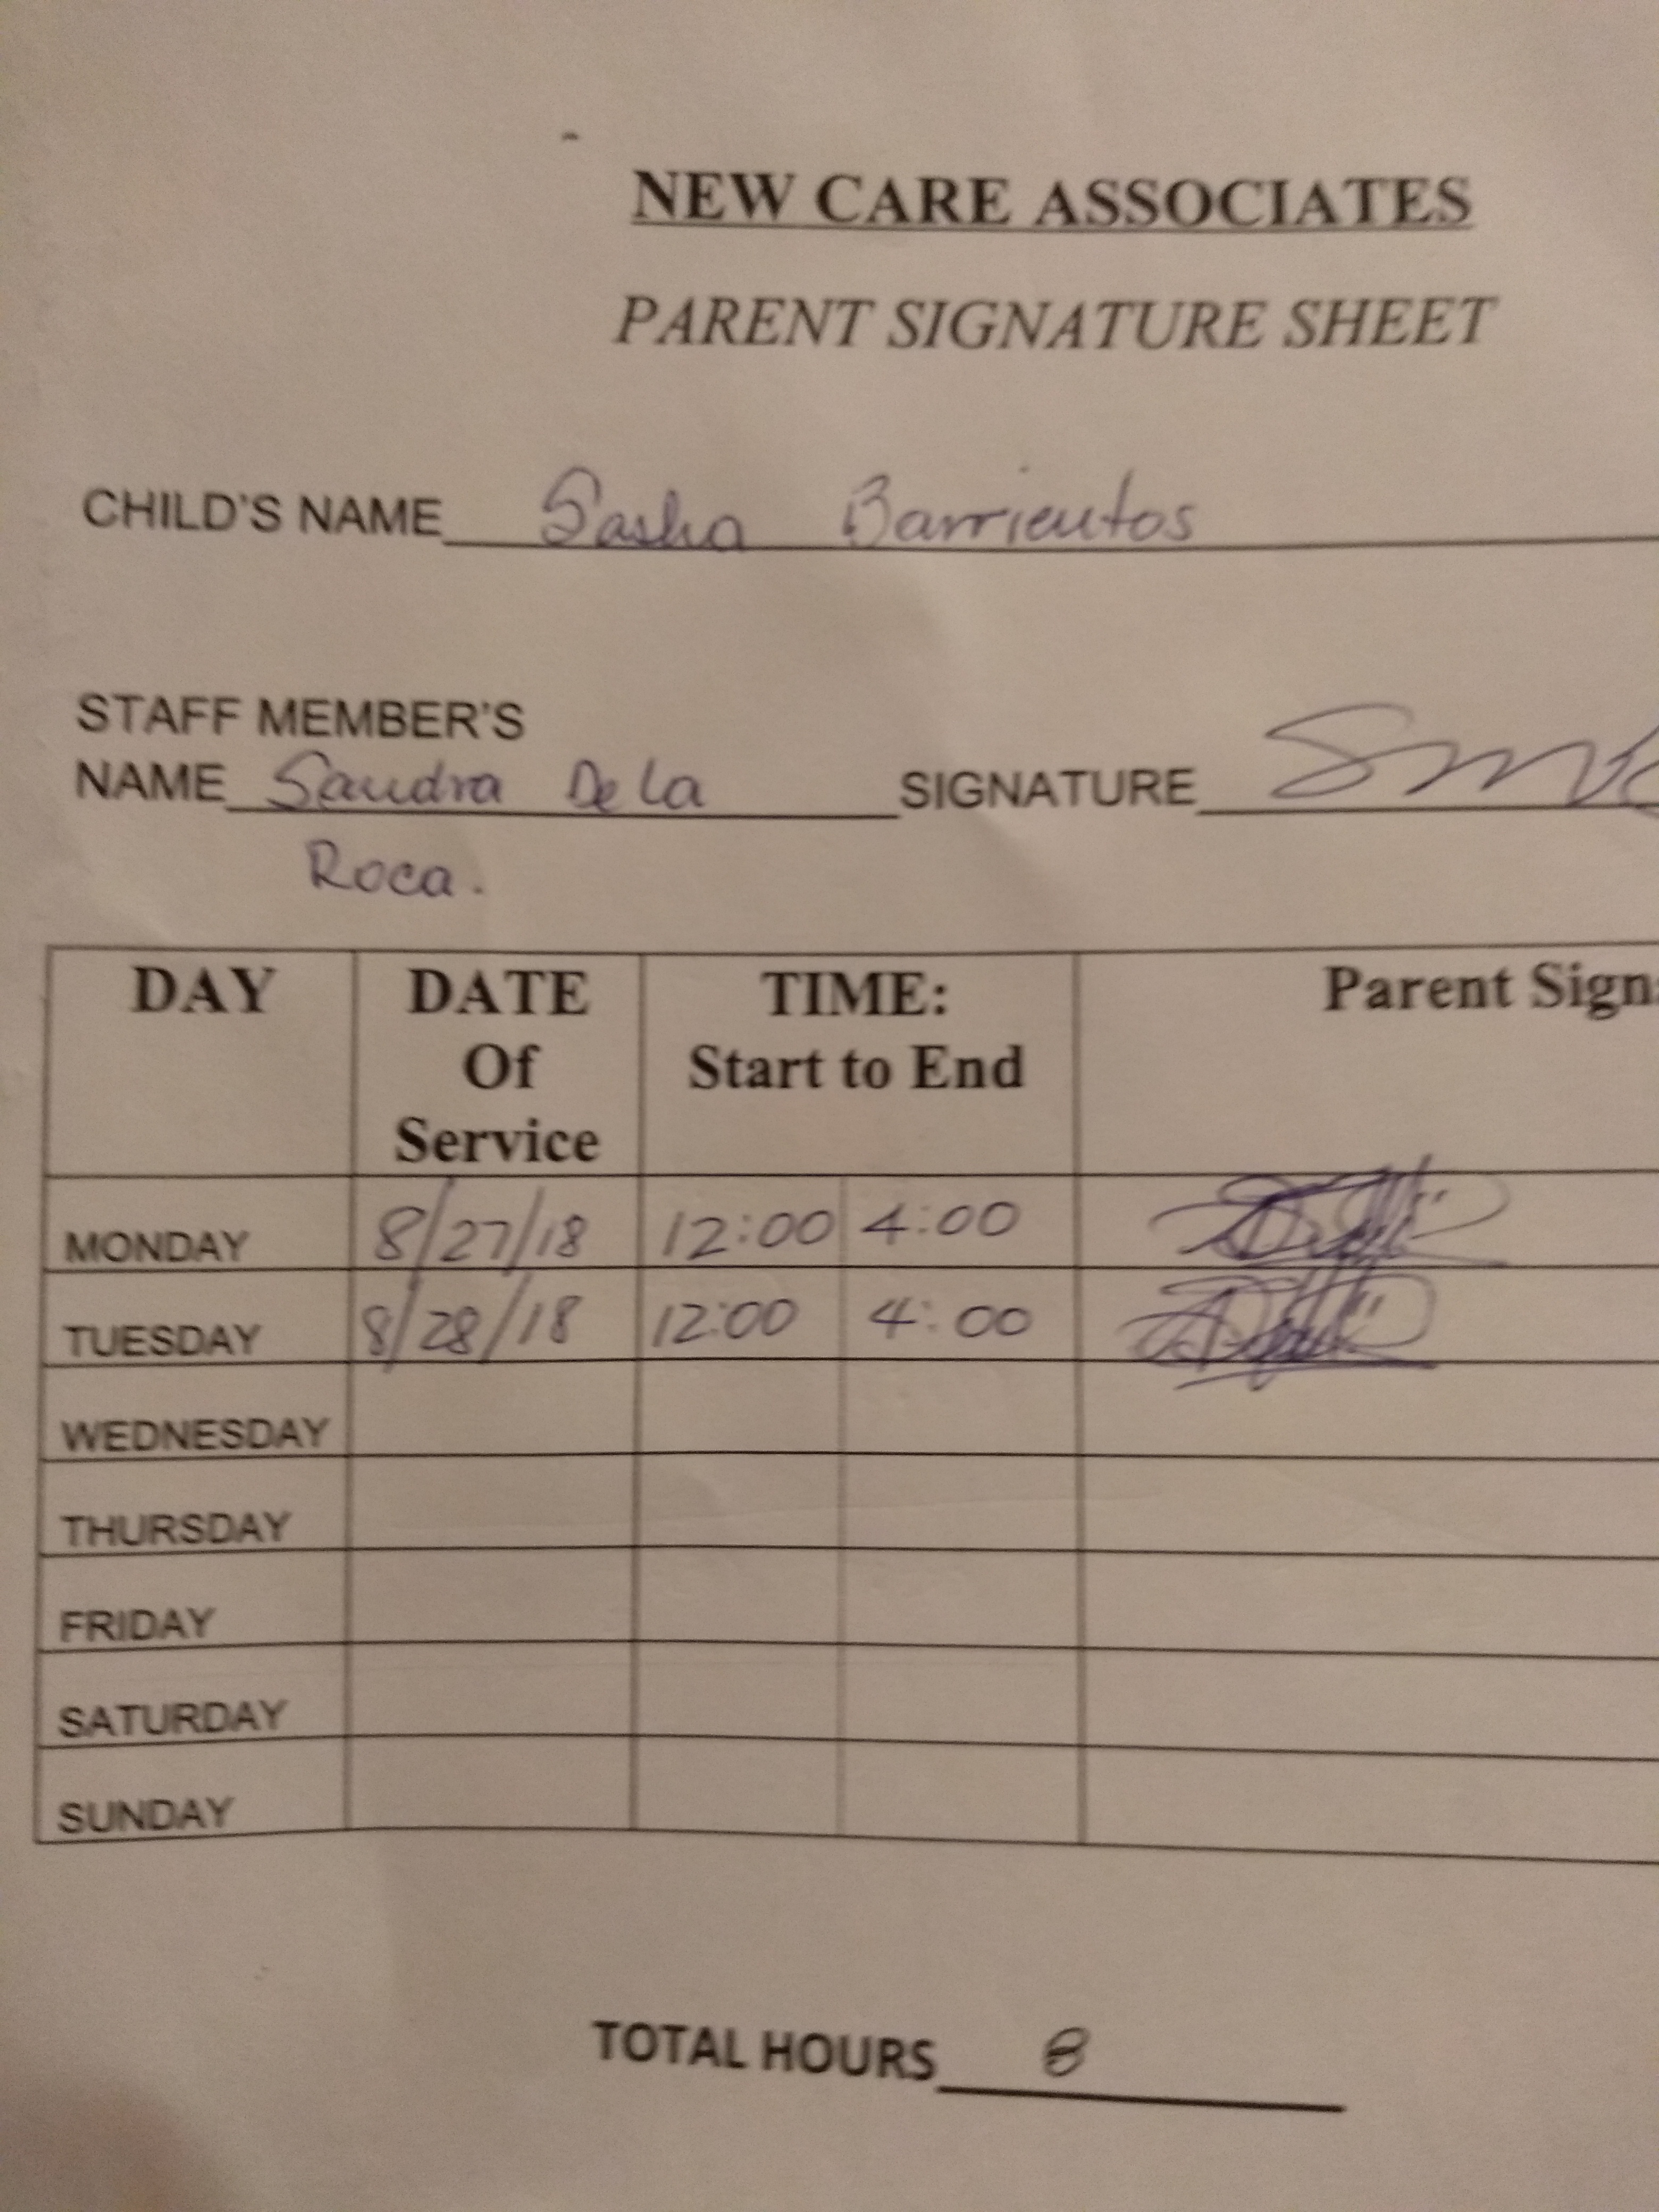 NEW CARE ASSOCIATES
PARENT SIGNATURE SHEET
CHILD'S NAME Sasha Barrientos
STAFF MEMBER'S
NAME Sandra De la SIGNATURE
Roca.
DAY DATE Of Service TIME: Start to End Parent Sign
MONDAY 8/27/18 12:00 4:00
TUESDAY 8/28/18 12:00 4:00
WEDNESDAY
THURSDAY
FRIDAY
SATURDAY
SUNDAY
TOTAL HOURS 8